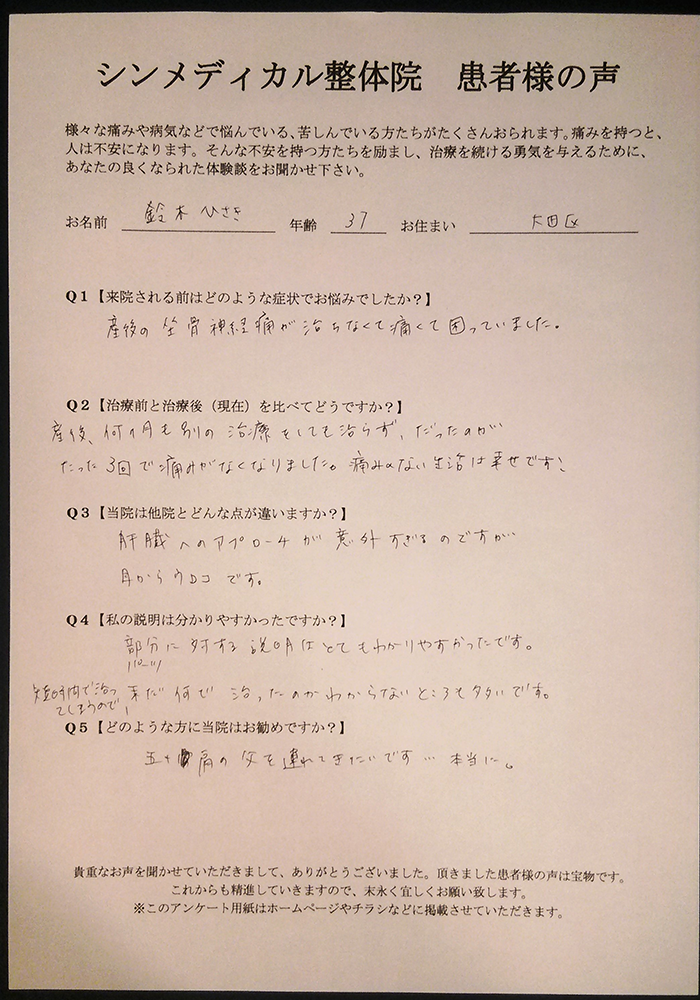 シンメディカル整体院　患者様の声
様々な痛みや病気などで悩んでいる、苦しんでいる方たちがたくさんおられます。痛みを持つと、
人は不安になります。そんな不安を持つ方たちを励まし、治療を続ける勇気を与えるために、
あなたの良くなられた体験談をお聞かせ下さい。
お名前　鈴木 ひさき　年齢　37　お住まい　大田区
Q1【来院される前はどのような症状でお悩みでしたか？】
産後の坐骨神経痛が治らなくて痛くて困っていました。
Q2【治療前と治療後（現在）を比べてどうですか？】
産後、何ヶ月も別の治療をしても治らず、だったのが
たった3回で痛みがなくなりました。痛みのない生活は幸せです！
Q3【当院は他院とどんな点が違いますか？】
肝臓へのアプローチが意外すぎるのですが
目からウロコです。
Q4【私の説明は分かりやすかったですか？】
部分に対する説明はとてもわかりやすかったです。
パーツ
短時間で治っ
てしまうので、
未だ何で治ったのかわからないところも多いです。
Q5【どのような方に当院はお勧めですか？】
五十肩の父を連れてきたいです… 本当に。
貴重なお声を聞かせていただきまして、ありがとうございました。頂きました患者様の声は宝物です。
これからも精進していきますので、末永く宜しくお願い致します。
※このアンケート用紙はホームページやチラシなどに掲載させていただきます。